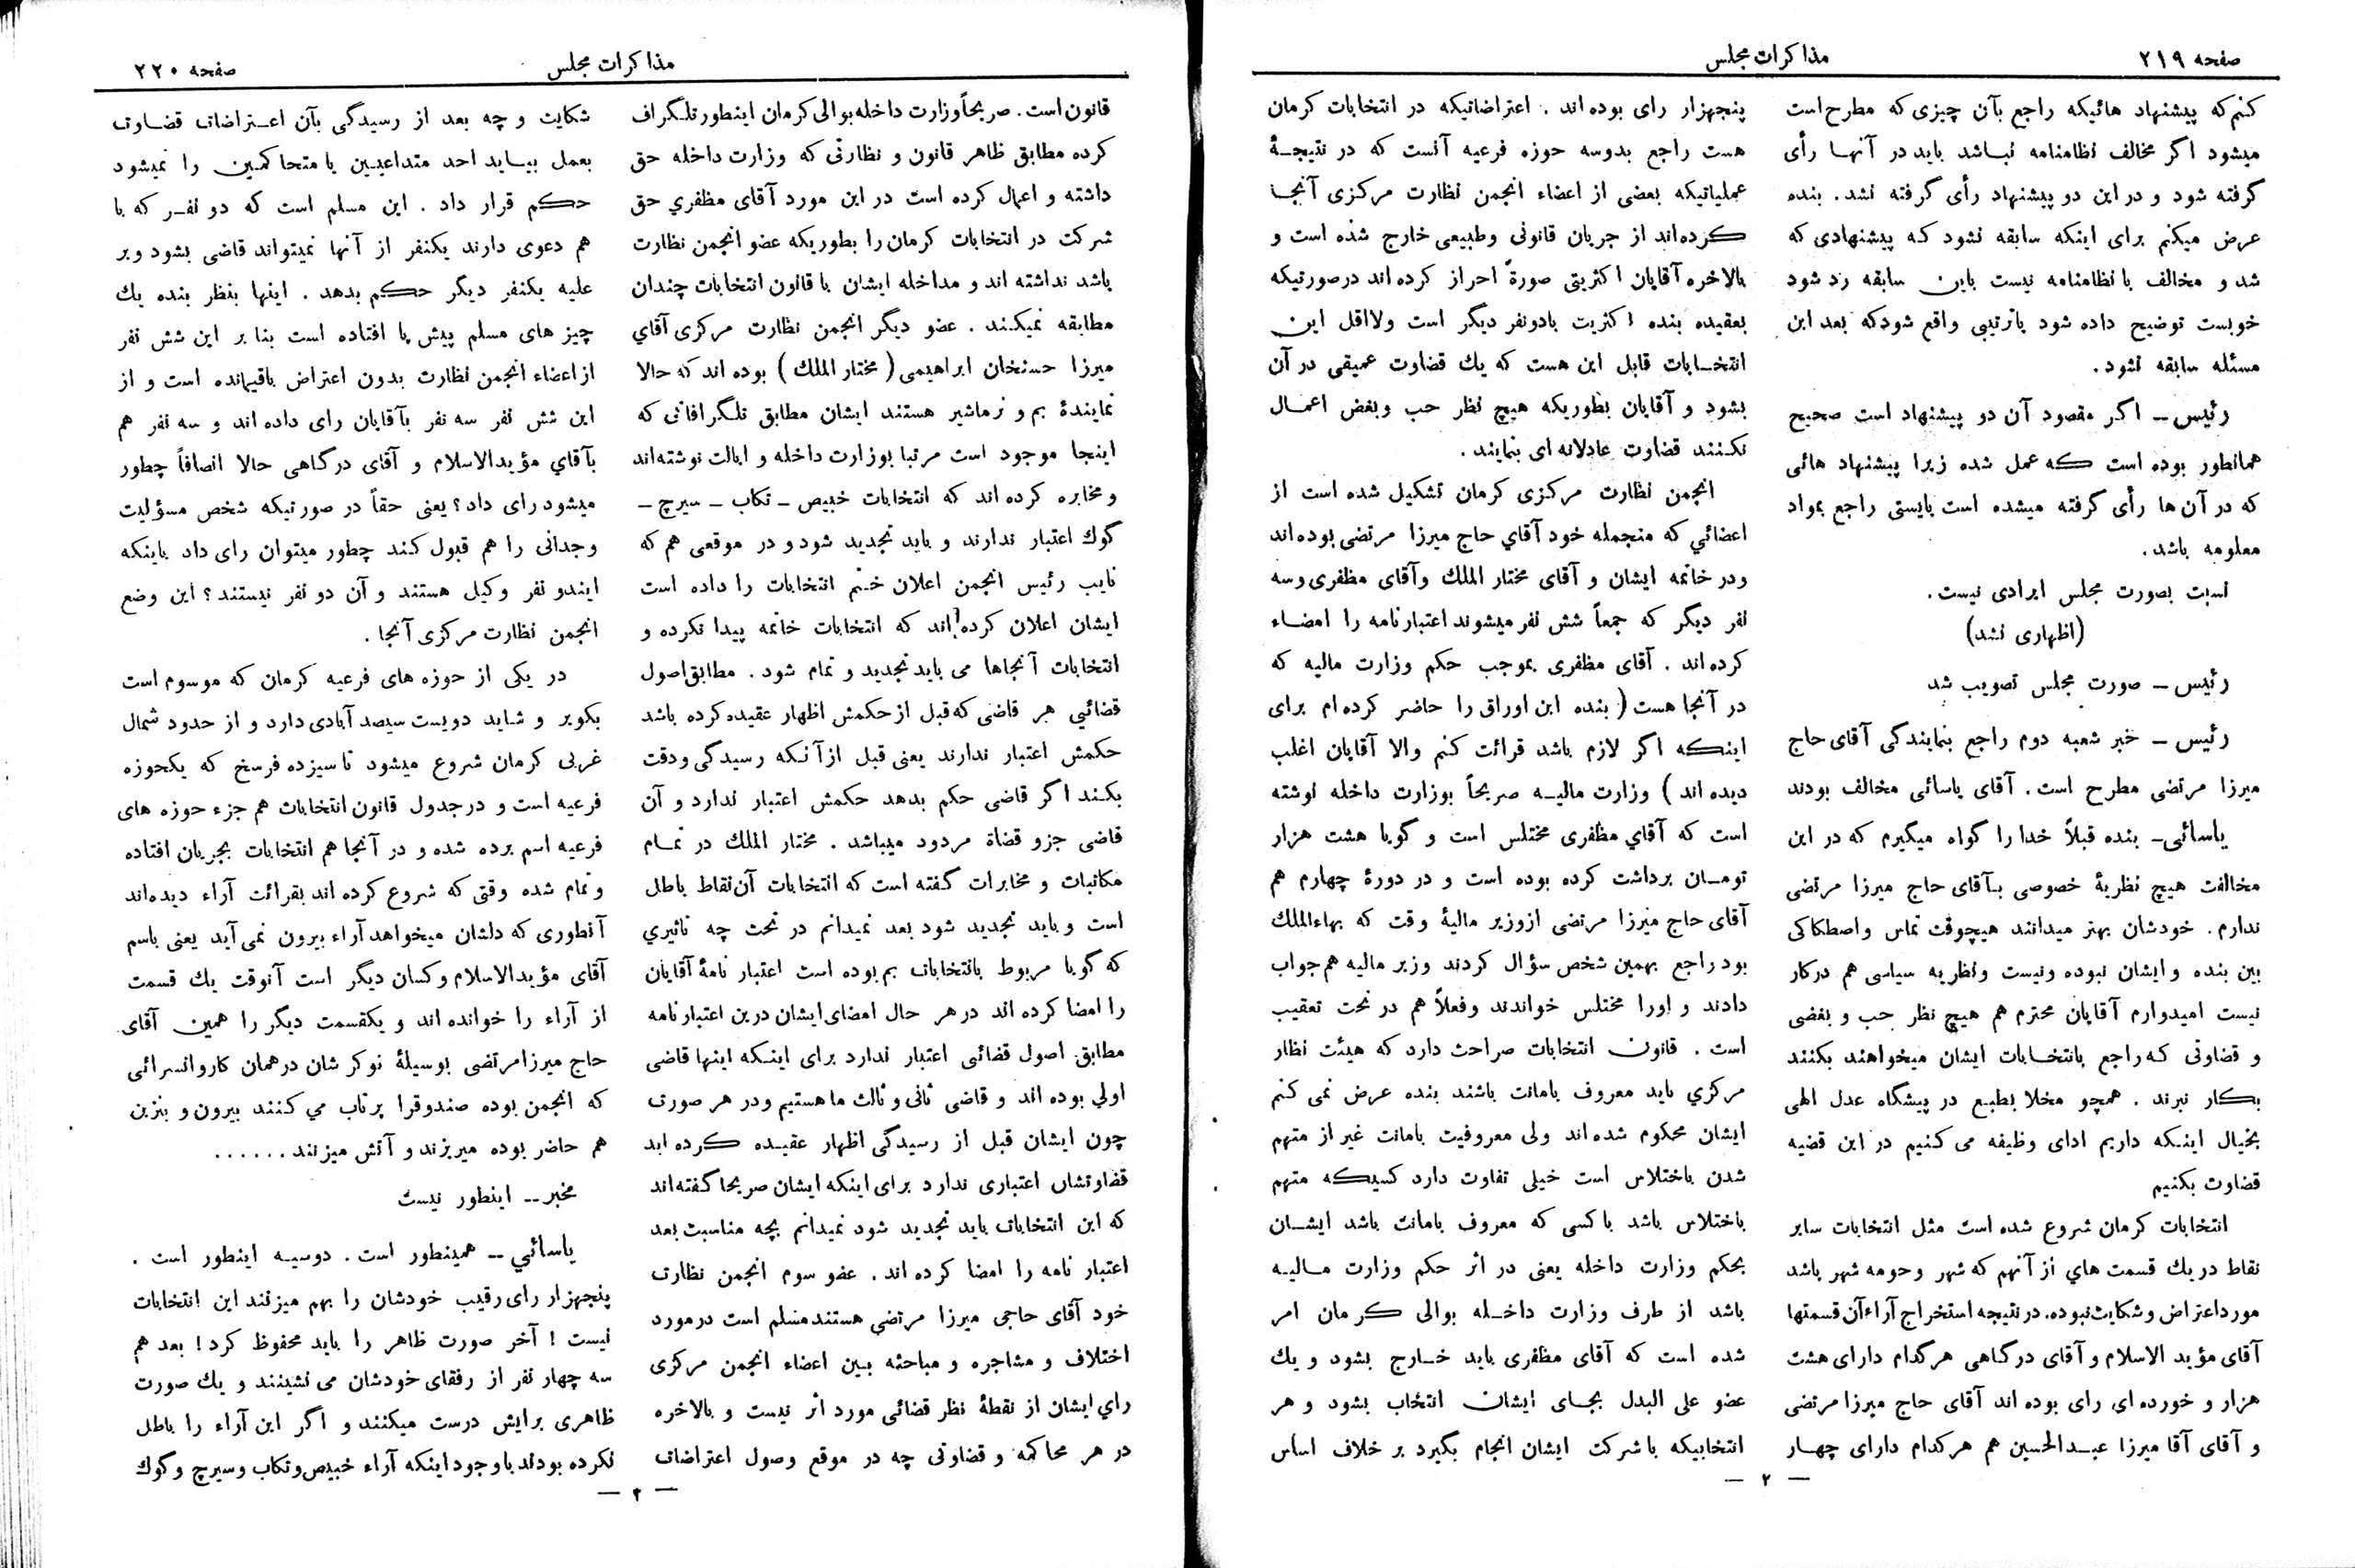 صفحه ۲۱۹
مذاکرات مجلس
کنم که پیشنهاد هائیکه راجع بآن چیزی که مطرح است
میشود اگر مخالف نظامنامه نباشد باید در آنها رأی
گرفته شود و در این دو پیشنهاد رأی گرفته نشد. بنده
عرض میکنم برای اینکه سابقه نشود که پیشنهادی که
شد و مخالف با نظامنامه نیست باین سابقه رد شود
خوبست توضیح داده شود یا ترتیبی واقع شود که بعد این
مسئله سابقه نشود.
رئیس ــ اگر مقصود آن دو پیشنهاد است صحیح
همانطور بوده است که عمل شده زیرا پیشنهاد هائی
که در آن ها رأی گرفته میشده است بایستی راجع بمواد
معلومه باشد.
نسبت بصورت مجلس ایرادی نیست.
(اظهاری نشد)
رئیس ــ صورت مجلس تصویب شد
رئیس ــ خبر شعبه دوم راجع بنمایندگی آقای حاج
میرزا مرتضی مطرح است. آقای یاسائی مخالف بودند
یاسائی ــ بنده قبلاً خدا را گواه میگیرم که در این
مخالفت هیچ نظریهٔ خصوصی بآقای حاج میرزا مرتضی
ندارم. خودشان بهتر میدانند هیچوقت تماس و اصطکاکی
بین بنده و ایشان نبوده ونیست ونظریه سیاسی هم درکار
نیست امیدوارم آقایان محترم هم هیچ نظر حب و بغضی
و قضاوتی که راجع بانتخابات ایشان میخواهند بکنند
بکار نبرند . همچو مخلا بطبع در پیشگاه عدل الهی
بخیال اینکه داریم ادای وظیفه می کنیم در این قضیه
قضاوت بکنیم
انتخابات کرمان شروع شده است مثل انتخابات سایر
نقاط در یك قسمت هاي از آنهم که شهر وحومه شهر باشد
مورد اعتراض و شکایت نبوده. در نتیجه استخراج آراء آن قسمتها
آقای مؤید الاسلام و آقای درگاهی هرگدام دارای هشت
هزار و خورده ای رای بوده اند آقای حاج میرزا مرتضی
و آقای آقا میرزا عبدالحسین هم هرکدام دارای چهار
پنجهزار رای بوده اند . اعتراضاتیکه در انتخابات کرمان
هست راجع بدوسه حوزه فرعیه آنست که در نتیجهٔ
عملیاتیکه بعضی از اعضاء انجمن نظارت مرکزی آنجا
کرده اند از جریان قانونی وطبیعی خارج شده است و
بالاخره آقایان اکثریتی صورةً احراز کرده اند درصورتیکه
بعقیده بنده اکثریت بادونفر دیگر است ولااقل این
انتخابات قابل این هست که یك قضاوت عمیقی در آن
بشود و آقایان بطوریکه هیچ نظر حب وبغض اعمال
نکنند قضاوت عادلانه ای بنمایند.
انجمن نظارت مرکزی کرمان تشکیل شده است از
اعضائي که منجمله خود آقاي حاج میرزا مرتضی بوده اند
ودر خاتمه ایشان و آقای مختار الملك وآقای مظفری وسه
نفر دیگر که جمعاً شش نفر میشوند اعتبارنامه را امضاء
کرده اند . آقای مظفری بموجب حکم وزارت مالیه که
در آنجا هست ( بنده این اوراق را حاضر کرده ام برای
اینکه اگر لازم باشد قرائت کنم والا آقایان اغلب
دیده اند ) وزارت مالیه صریحاً بوزارت داخله نوشته
است که آقاي مظفری مختلس است و گویا هشت هزار
تومان برداشت کرده بوده است و در دورهٔ چهارم هم
آقای حاج میرزا مرتضی ازوزیر مالیهٔ وقت که بهاءالملك
بود راجع بهمین شخص سؤال کردند وزیر مالیه هم جواب
دادند و اورا مختلس خواندند وفعلاً هم در تحت تعقیب
است . قانون انتخابات صراحت دارد که هیئت نظار
مرکزي باید معروف بامانت باشند بنده عرض نمی کنم
ایشان محکوم شده اند ولی معروفیت بامانت غیر از متهم
شدن باختلاس است خیلی تفاوت دارد کسیکه متهم
باختلاس باشد با کسی که معروف بامانت باشد ایشان
بحکم وزارت داخله یعنی در اثر حکم وزارت مالیه
باشد از طرف وزارت داخله بوالی کرمان امر
شده است که آقای مظفری باید خارج بشود و یك
عضو علی البدل بجای ایشان انتخاب بشود و هر
انتخابیکه با شرکت ایشان انجام بگیرد بر خلاف اساس
— ۲ —
مذاکرات مجلس
صفحه ۲۲۰
قانون است. صریحاً وزارت داخله بوالی کرمان اینطور تلگراف
کرده مطابق ظاهر قانون و نظارتی که وزارت داخله حق
داشته و اعمال کرده است در این مورد آقای مظفري حق
شرکت در انتخابات کرمان را بطوریکه عضو انجمن نظارت
باشد نداشته اند و مداخله ایشان با قانون انتخابات چندان
مطابقه نمیکند . عضو دیگر انجمن نظارت مرکزی آقاي
میرزا حسنخان ابراهیمی ( مختار الملك ) بوده اند که حالا
نمایندهٔ بم و نرماشیر هستند ایشان مطابق تلگرافاتی که
اینجا موجود است مرتبا بوزارت داخله و ایالت نوشته اند
و مخابره کرده اند که انتخابات خبیص ــ تکاب ــ سیرچ ــ
گوك اعتبار ندارند و باید تجدید شود و در موقعی هم که
نایب رئیس انجمن اعلان ختم انتخابات را داده است
ایشان اعلان کرده اند که انتخابات خاتمه پیدا نکرده و
انتخابات آنجاها می باید تجدید و تمام شود . مطابق اصول
قضائی هر قاضی که قبل از حکمش اظهار عقیده کرده باشد
حکمش اعتبار ندارند یعنی قبل ازآنکه رسیدگی ودقت
بکند اگر قاضی حکم بدهد حکمش اعتبار ندارد و آن
قاضی جزو قضاة مردود میباشد . مختار الملك در تمام
مکاتبات و مخابرات گفته است که انتخابات آن نقاط باطل
است و باید تجدید شود بعد نمیدانم در تحت چه تاثیري
که گویا مربوط بانتخابات بم بوده است اعتبار نامهٔ آقایان
را امضا کرده اند در هر حال امضای ایشان درین اعتبارنامه
مطابق اصول قضائی اعتبار ندارد برای اینکه اینها قاضی
اولي بوده اند و قاضی ثانی و ثالث ما هستیم ودر هر صورت
چون ایشان قبل از رسیدگی اظهار عقیده کرده اید
قضاوتشان اعتباری ندارد برای اینکه ایشان صریحا گفته اند
که این انتخابات باید تجدید شود نمیدانم بچه مناسبت بعد
اعتبار نامه را امضا کرده اند. عضو سوم انجمن نظارت
خود آقای حاجی میرزا مرتضی هستند مسلم است در مورد
اختلاف و مشاجره و مباحثه بین اعضاء انجمن مرکزی
راي ایشان از نقطهٔ نظر قضائی مورد اثر نیست و بالاخره
در هر محاکمه و قضاوتی چه در موقع وصول اعتراضات
شکایت و چه بعد از رسیدگی بآن اعتراضات قضاوت
بعمل بیاید احد متداعیین یا متحاکمین را نمیشود
حکم قرار داد . این مسلم است که دو نفر که با
هم دعوی دارند یکنفر از آنها نمیتواند قاضی بشود و بر
علیه یکنفر دیگر حکم بدهد . اینها بنظر بنده یك
چیز های مسلم پیش پا افتاده است بنا بر این شش نفر
از اعضاء انجمن نظارت بدون اعتراض باقیمانده است و از
این شش نفر سه نفر بآقایان رای داده اند و سه نفر هم
بآقاي مؤیدالاسلام و آقای درگاهی حالا انصافاً چطور
میشود رای داد؟ یعنی حقاً در صورتیکه شخص مسؤلیت
وجدانی را هم قبول کند چطور میتوان رای داد باینکه
ایندو نفر وکیل هستند و آن دو نفر نیستند؟ این وضع
انجمن نظارت مرکزی آنجا .
در یکی از حوزه های فرعیه کرمان که موسوم است
بکویر و شاید دویست سیصد آبادی دارد و از حدود شمال
غربی کرمان شروع میشود تا سیزده فرسخ که یکحوزه
فرعیه است و در جدول قانون انتخابات هم جزء حوزه های
فرعیه اسم برده شده و در آنجا هم انتخابات بجریان افتاده
و تمام شده وقتی که شروع کرده اند بقرائت آراء دیده اند
آنطوری که دلشان میخواهد آراء بیرون نمی آید یعنی باسم
آقای مؤیدالاسلام وکسان دیگر است آنوقت یك قسمت
از آراء را خوانده اند و یکقسمت دیگر را همین آقای
حاج میرزامرتضی بوسیلهٔ نوکر شان درهمان کاروانسرائی
که انجمن بوده صندوقرا پرتاب می کنند بیرون و بنزین
هم حاضر بوده میریزند و آتش میزنند......
مخبر ــ اینطور نیست
یاسائي ــ همینطور است. دوسیه اینطور است .
پنجهزار رای رقیب خودشان را بهم میزنند این انتخابات
نیست ! آخر صورت ظاهر را باید محفوظ کرد! بعد هم
سه چهار نفر از رفقای خودشان می نشینند و یك صورت
ظاهری برایش درست میکنند و اگر این آراء را باطل
نکرده بودند باوجود اینکه آراء خبیص وتکاب وسیرچ وگوك
— ۳ —